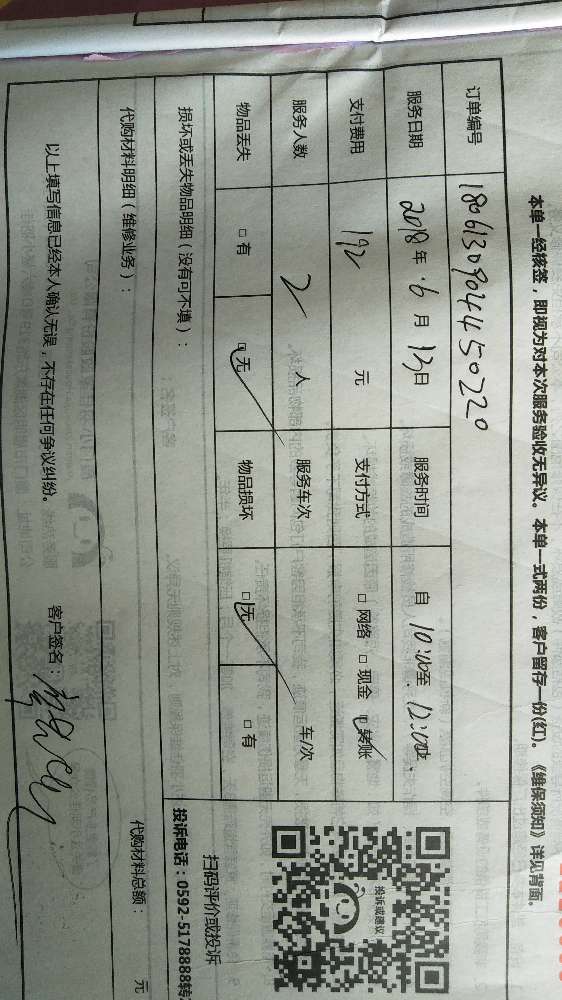 本单一经核签，即视为对本次服务验收无异议。本单一式两份，客户留存一份(红)。《维保须知》详见背面。
订单编号 180613090444450220
服务日期 2018年 6月 13日 服务时间 自 10:00至 12:00止
支付费用 192 元 支付方式 □ 网络 □ 现金 □ 转账
服务人数 2 人 服务车次 车/次
物品丢失 □ 有 □ 无 物品损坏 □ 无 □ 有
投诉或建议
扫码评价或投诉
投诉电话：0592-5178888转
损坏或丢失物品明细（没有可不填）：
代购材料明细（维修业务）： 代购材料总额： 元
以上填写信息已经本人确认无误，不存在任何争议纠纷。 客户签名：